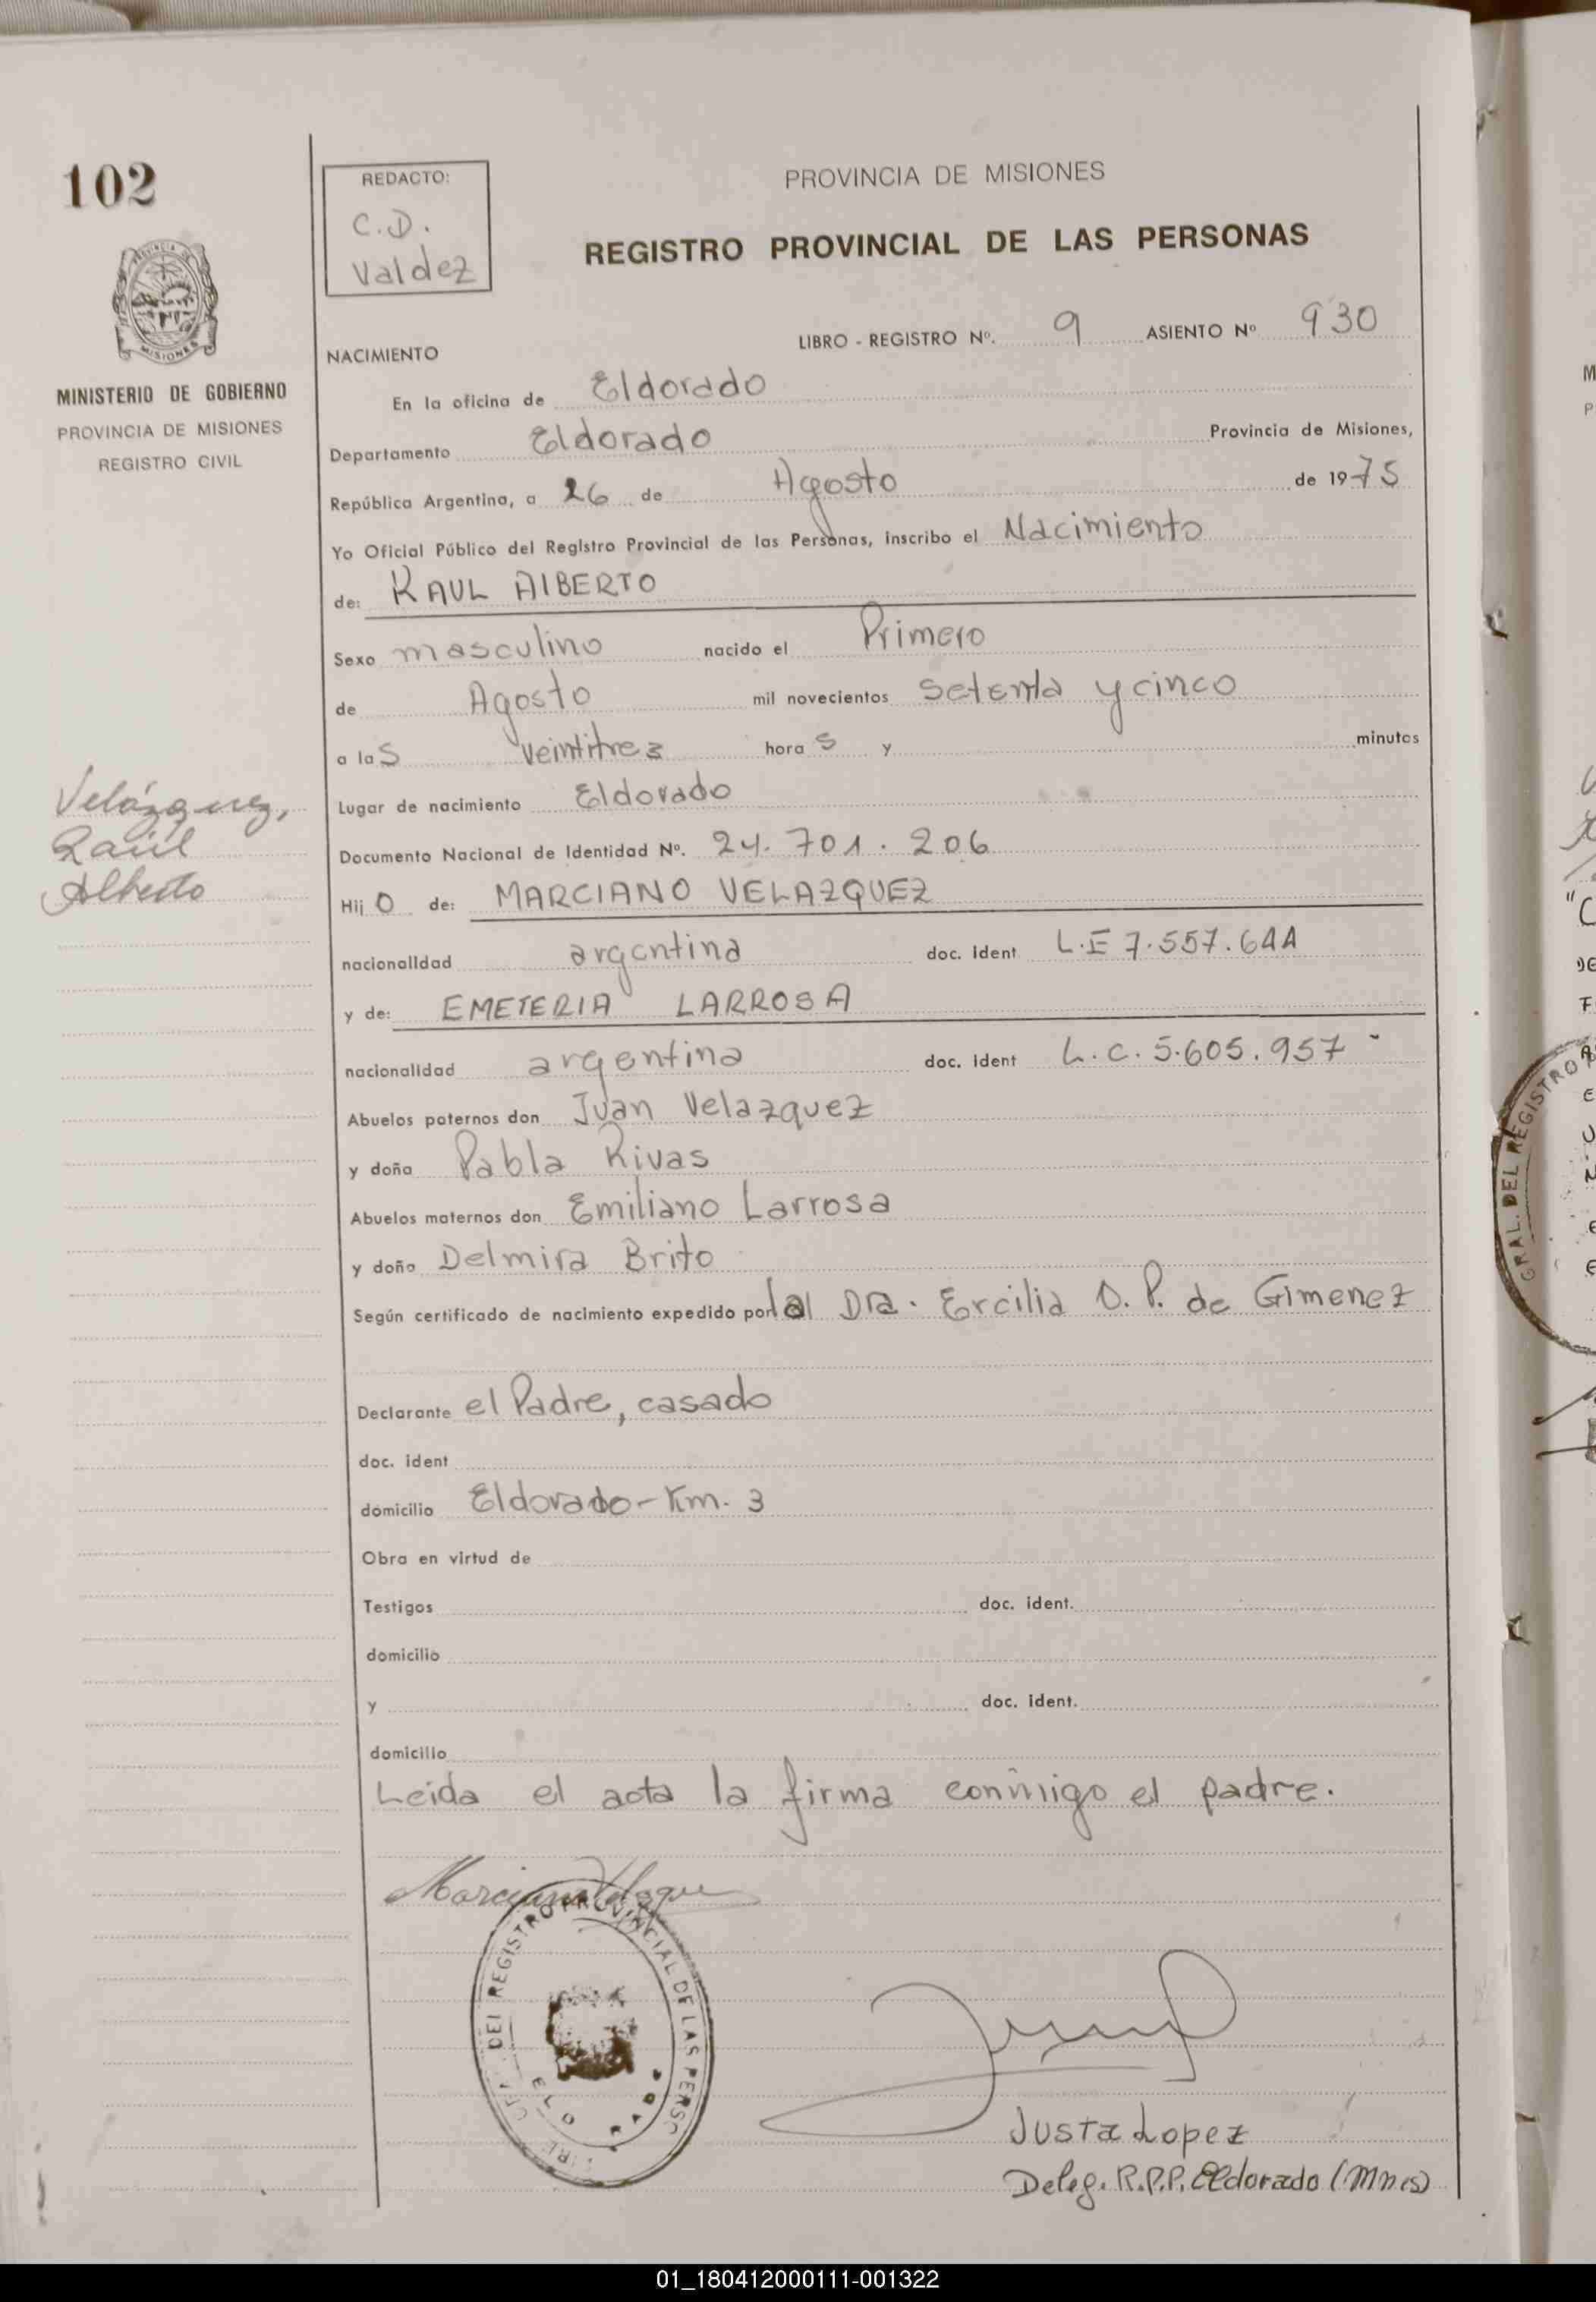 102
REDACTO:
C.D.
Valdez
PROVINCIA DE MISIONES
REGISTRO PROVINCIAL DE LAS PERSONAS
MINISTERIO DE GOBIERNO
PROVINCIA DE MISIONES
REGISTRO CIVIL
LIBRO - REGISTRO Nº. 9 ASIENTO Nº 930
NACIMIENTO
En la oficina de Eldorado
Departamento Eldorado Provincia de Misiones,
República Argentina, a 26 de Agosto de 1975
Yo Oficial Público del Registro Provincial de las Personas, inscribo el Nacimiento
de: RAUL ALBERTO
Sexo masculino nacido el Primero
de Agosto mil novecientos setenta y cinco
a las veintitres horas y minutos
Velázquez,
Raúl
Alberto
Lugar de nacimiento Eldorado
Documento Nacional de Identidad Nº. 24.701.206
Hijo de: MARCIANO VELAZQUEZ
nacionalidad argentina doc. ident L.E 7.557.644
y de: EMETERIA LARROSA
nacionalidad argentina doc. ident L.C. 5.605.957 -
Abuelos paternos don Juan Velazquez
y doña Pabla Rivas
Abuelos maternos don Emiliano Larrosa
y doña Delmira Brito
Según certificado de nacimiento expedido por la Dra. Ercilia O. P. de Gimenez
Declarante el Padre, casado
doc. ident
domicilio Eldorado - Km. 3
Obra en virtud de
Testigos doc. ident.
domicilio
y doc. ident.
domicilio
Leida el acta la firma conmigo el padre.
DEL REGISTRO PROVINCIAL DE LAS PERSO
Justa Lopez
Deleg. R.P.P. Eldorado (Mnes)
GRAL. DEL REGISTRO
01_180412000111-001322